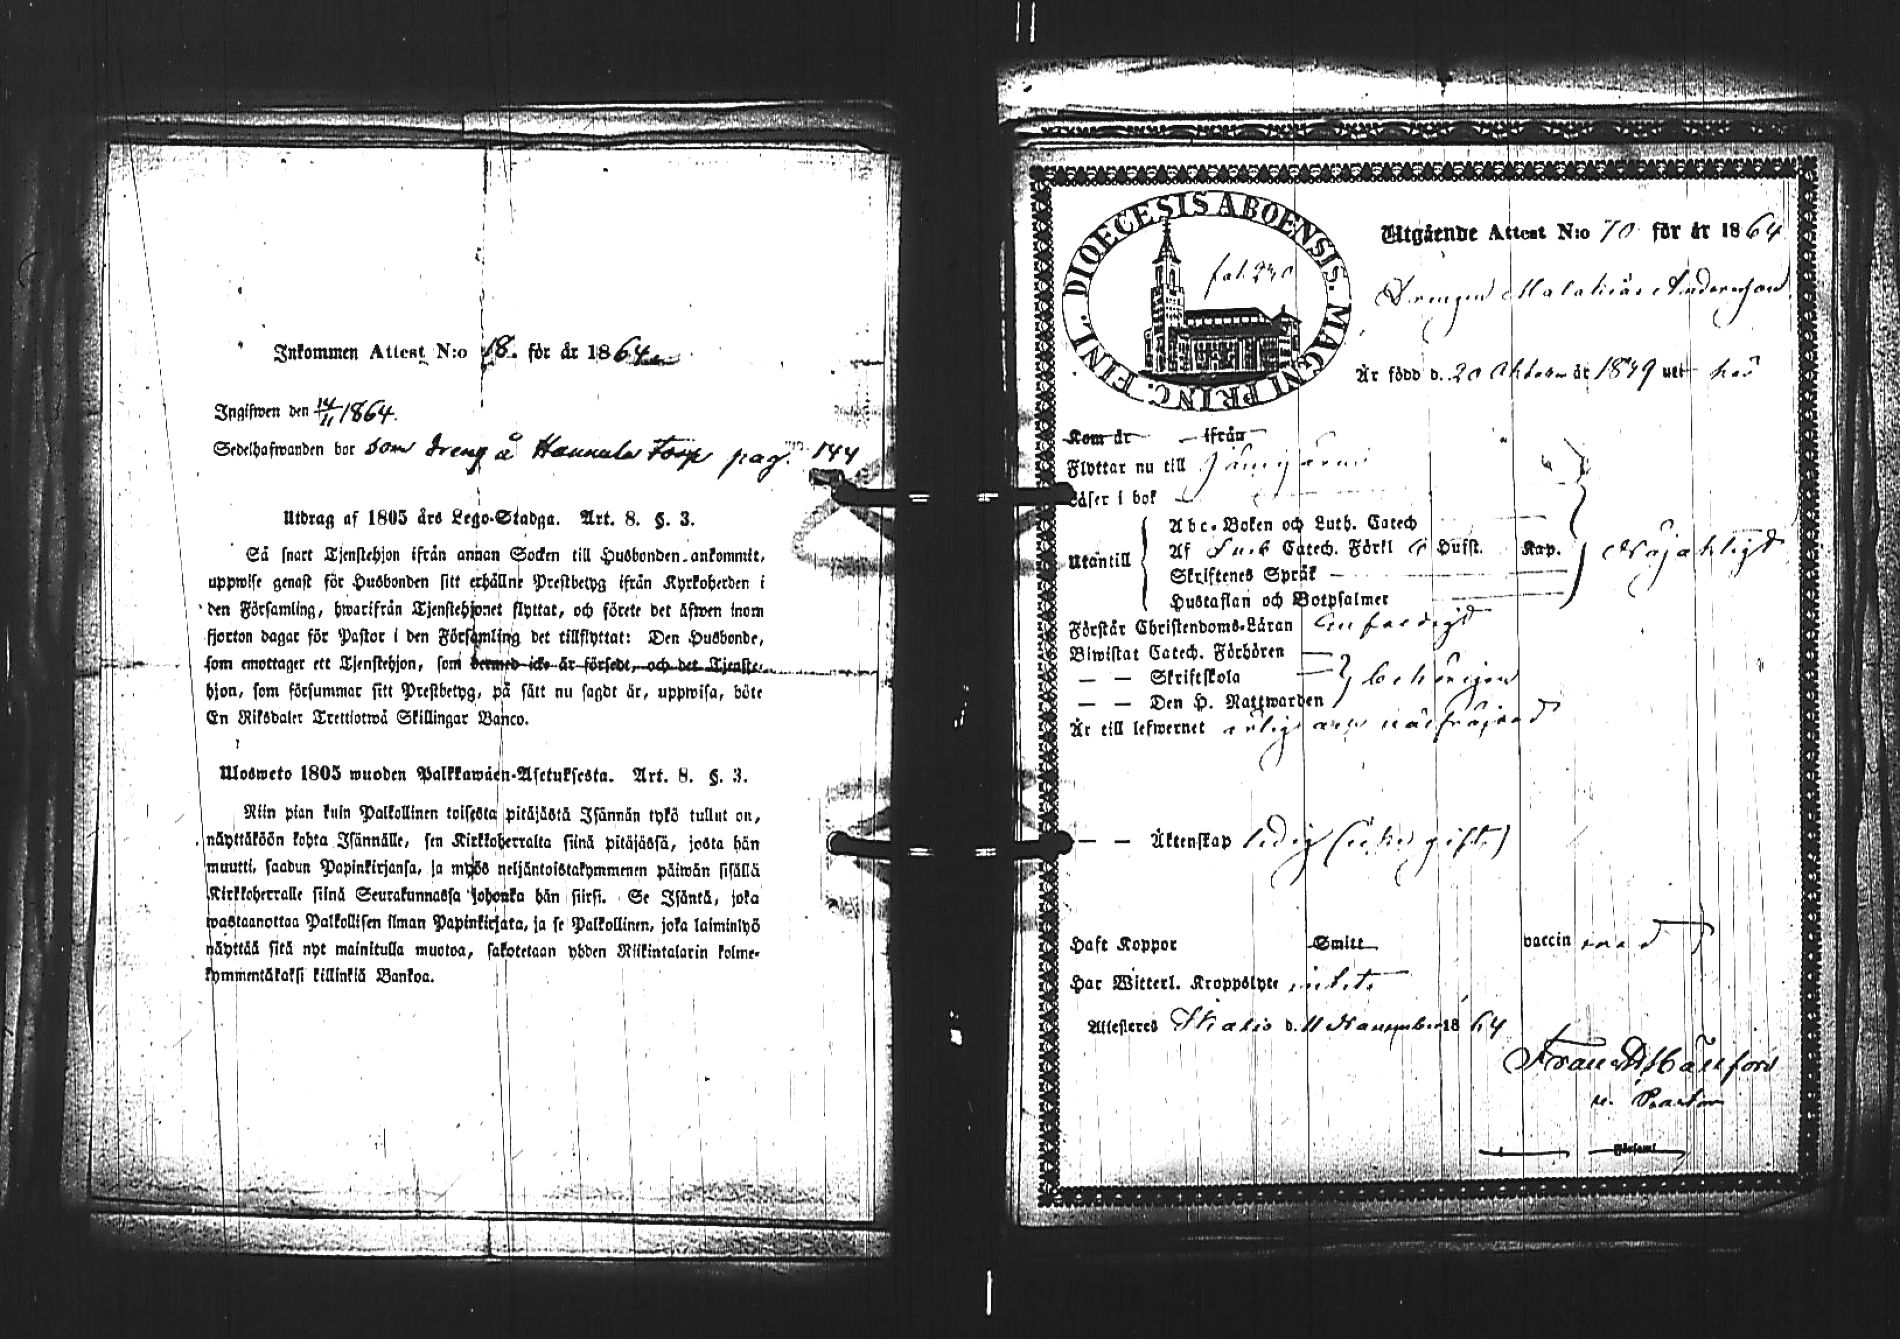 Inkommen Attest N:o 18. för år 1864
Ingifwen den 14/11 1864.
Sedelhafwanden bor som dreng å Hannula Torp pag. 144
Utdrag af 1805 års Lego-Stadga. Art. 8. §. 3.
Så snart Tjenstehjon ifrån annan Socken till Husbonden ankommit,
uppwise genast för Husbonden sitt erhållne Prestbetyg ifrån Kyrkoherden i
den Församling, hwarifrån Tjenstehjonet flyttat, och förete det äfwen inom
fjorton dagar för Pastor i den Församling det tillflyttat: Den Husbonde,
som emottager ett Tjenstehjon, som dermed icke är försedt, och det Tjenste-
hjon, som försummar sitt Prestbetyg, på sätt nu sagdt är, uppwisa, böte
En Riksdaler Trettiotwå Skillingar Banco.
Ulosweto 1805 wuoden Palkkawäen-Asetuksesta. Art. 8. §. 3.
Niin pian kuin Palkollinen toisesta pitäjästä Isännän tykö tullut on,
näyttäköön kohta Isännälle, sen Kirkkoherralta siinä pitäjässä, josta hän
muutti, saadun Papinkirjansa, ja myös neljäntoistakymmenen päiwän sisällä
Kirkkoherralle siinä Seurakunnassa johonka hän siirsi. Se Isäntä, joka
wastaanottaa Palkollisen ilman Papinkirjata, ja se Palkollinen, joka laiminlyö
näyttää sitä nyt mainitulla muotoa, sakotetaan yhden Riikintalarin kolme-
kymmentäkaksi killinkiä Bankoa.
DIOECESIS ABOENSIS. MAGNI PRINC. FINL.
fol. 230
Utgående Attest N:o 70 för år 1864
Drengen Malakias Andersson
Är född d. 20 Oktober år 1849 utt här
Kom år ifrån
Flyttar nu till Jämijärvi
Läser i bok
Utantill
Abc-Boken och Luth. Catech
Af Catech. Förkl Hufst. Kap.
Skriftenes Språk
Hustaflan och Botpsalmer
Nöjaktigt
Förstår Christendoms-Läran enfaldigt
Biwistat Catech. Förhören
— — Skriftskola
— — Den H. Nattwarden
behörigen
Är till lefwernet ärlig och wälfräjdad
— — Äktenskap ledig (icke gift)
Haft Koppor Smitt vaccin med
Har Witterl. Kroppslyte intet.
Attesteras d. 11 November 1864
v. Pastor
Församl